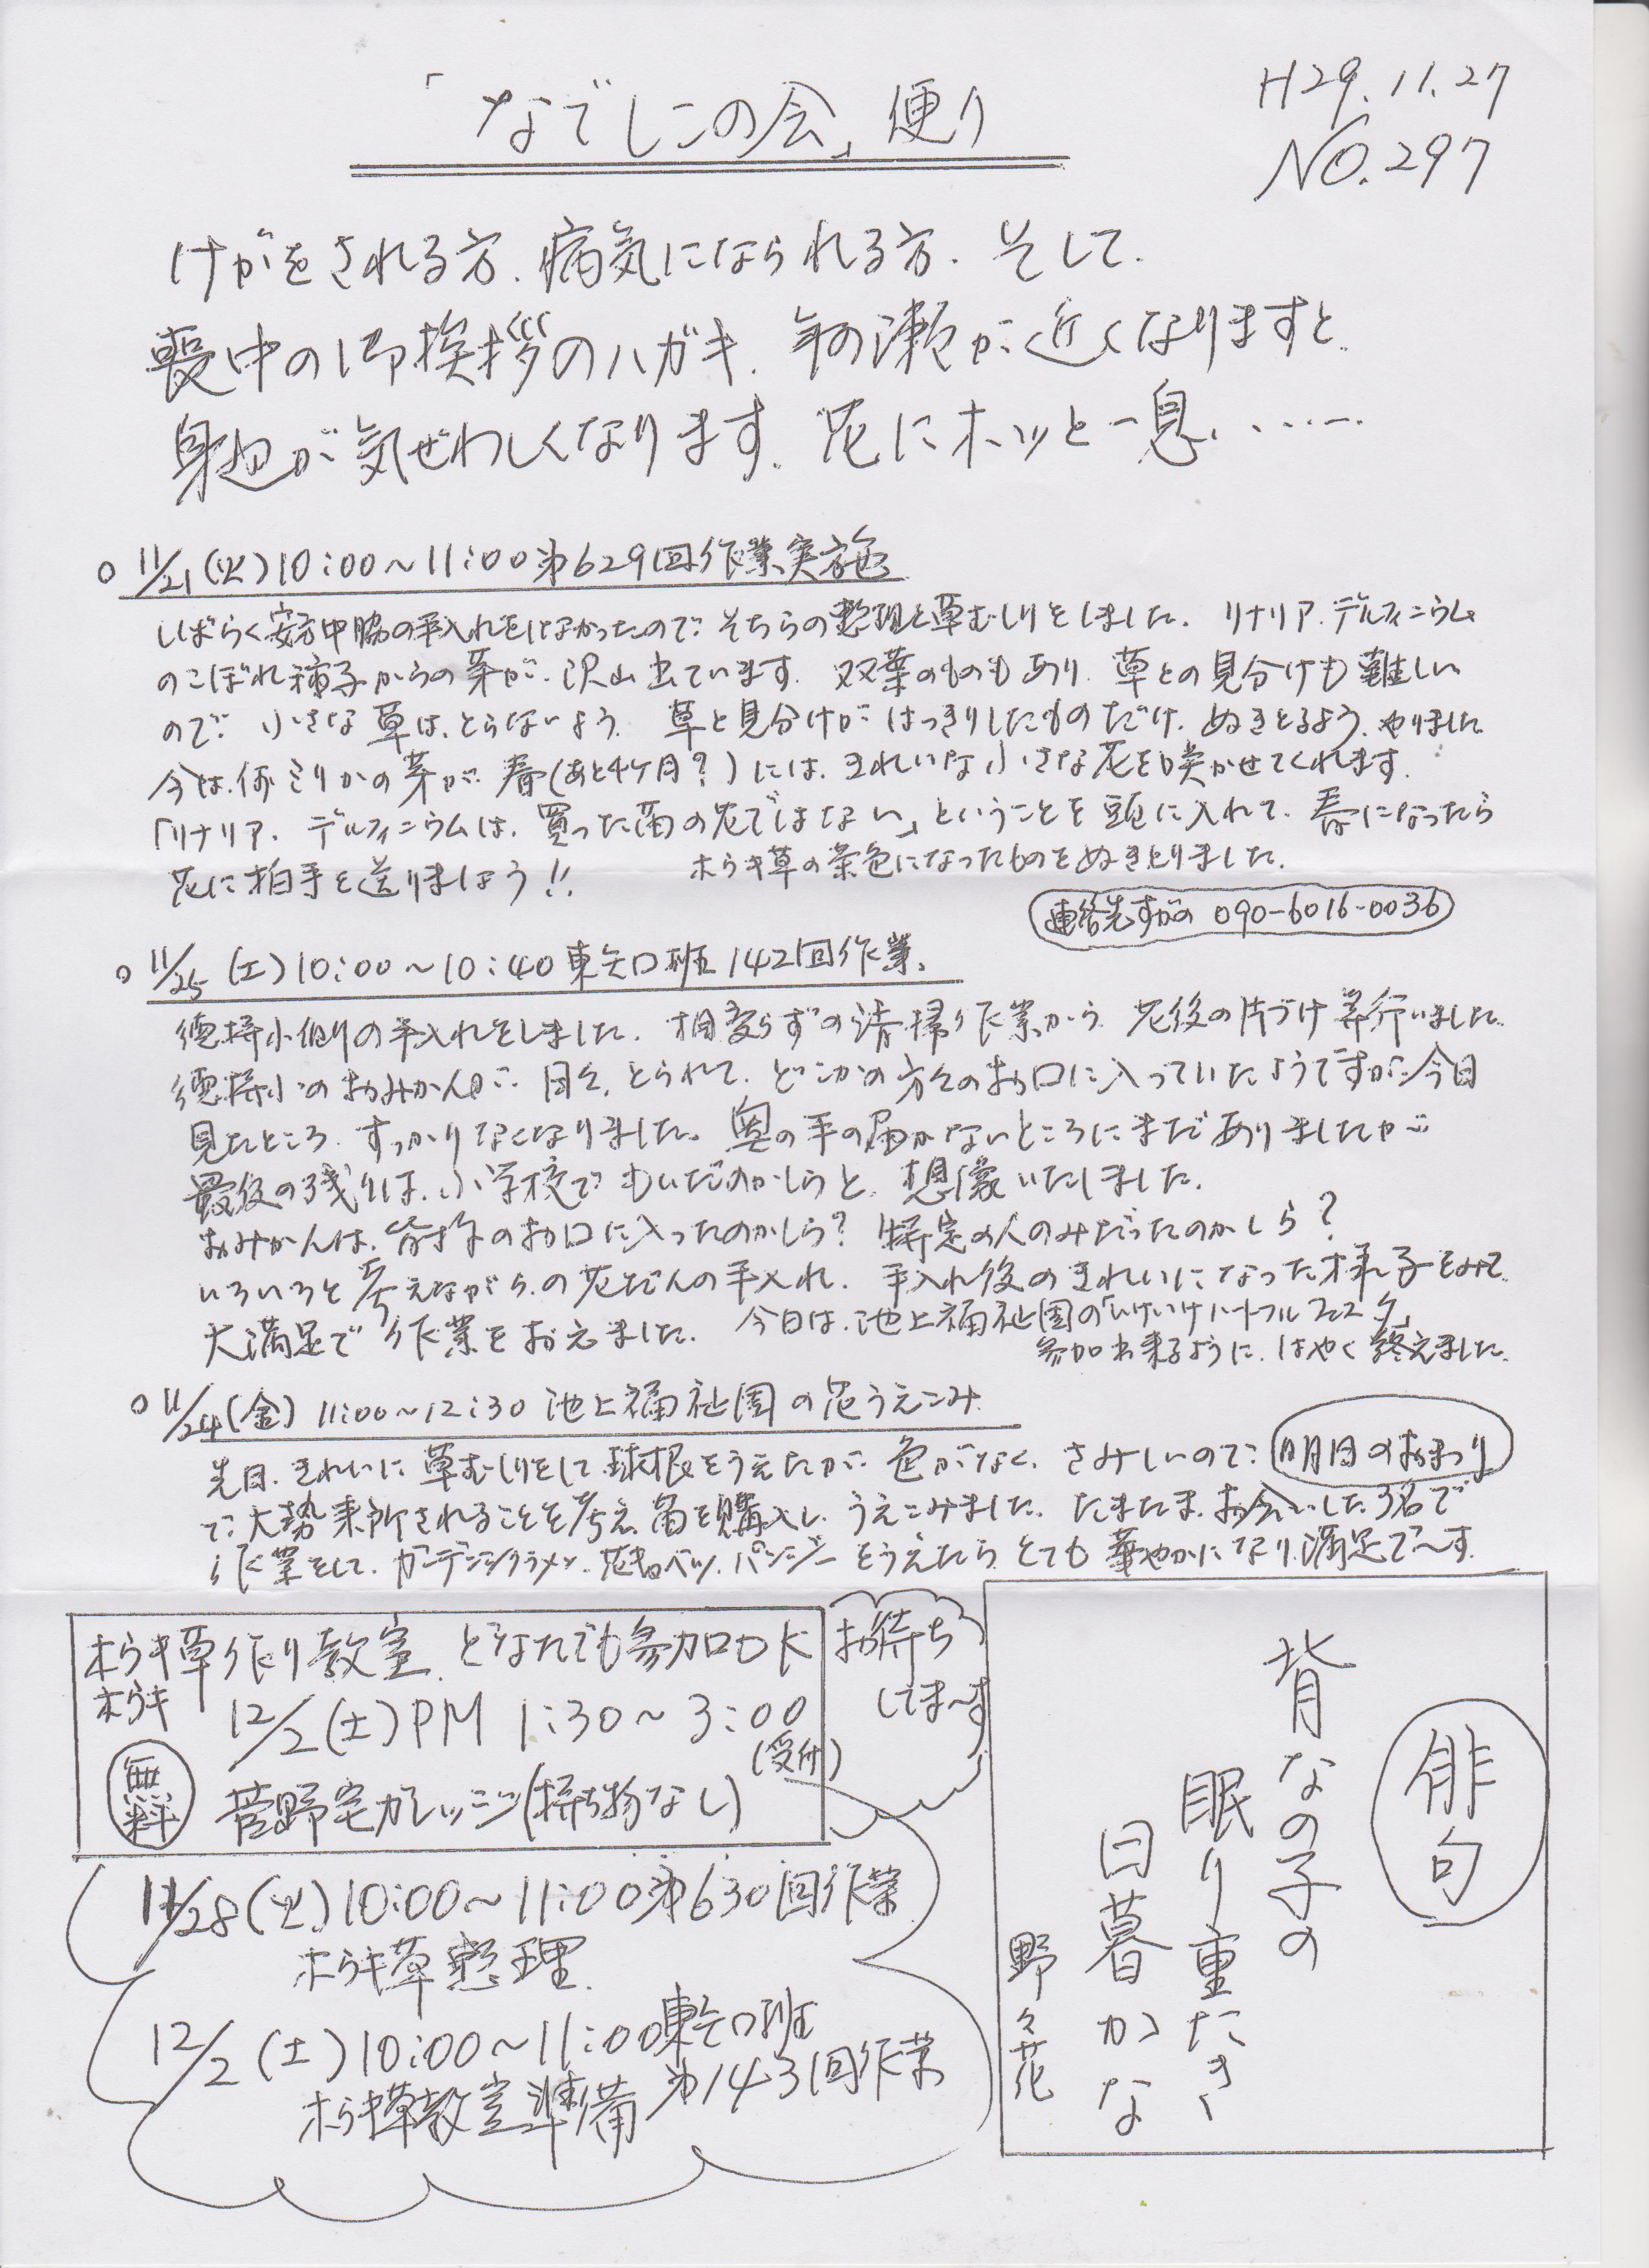 「なでしこの会」便り
H29.11.27
NO.297
けがをされる方、病気になられる方、そして、
喪中の御挨拶のハガキ、年の瀬が近くなりますと、
身辺が気ぜわしくなります。花にホッと一息、・・・・・
○11/21(火)10:00~11:00第629回作業実施
しばらく安方中脇の手入れをしなかったので、そちらの整理と草むしりをしました。リナリア、デルフィニウム
のこぼれ種子からの芽が、沢山出ています。双葉のものもあり、草との見分けも難しい
ので、小さな草は、とらないよう、草と見分けがはっきりしたものだけ、ぬきとるよう、やりました。
今は、何ミリかの芽が、春(あと4ケ月?)には、きれいな小さな花を咲かせてくれます。
「リナリア、デルフィニウムは、買った苗の花ではない」ということを頭に入れて、春になったら
花に拍手を送りましょう!!
ホウキ草の茶色になったものをぬきとりました。
連絡先すがの 090-6016-0036
○11/25(土)10:00~10:40東矢口班142回作業、
徳持小側の手入れをしました。相変らずの清掃作業から、花後の片づけ等行いました。
徳持小のおみかんが、日々、とられて、どこかの方々のお口に入っていたようですが、今日
見たところ、すっかりなくなりました。奥の手の届かないところにまだありましたが、
最後の残りは、小学校でもいだのかしらと、想像いたしました。
おみかんは、皆様のお口に入ったのかしら? 特定の人のみだったのかしら?
いろいろと考えながら、の花だんの手入れ、手入れ後のきれいになった様子をみて、
大満足で作業をおえました。今日は、池上福祉園の「いけいけハートフルフェスタ」
参加出来るように、はやく終えました。
○11/24(金)11:00~12:30 池上福祉園の花うえこみ
先日、きれいに草むしりをして、球根をうえたが、色がなく、さみしいので、明日のおまつり
で、大勢来所されることを考え、苗を購入し、うえこみました。たまたま、お会いした3名で
作業をして、ガーデンシクラメン、花キャベツ、パンジーをうえたら、とても華やかになり、満足で~す。
ホウキ草作り教室、どなたでも参加OK
ホウキ
12/2(土)PM 1:30~3:00
(受付)
無料
菅野宅ガレッジ(持ち物なし)
お待ち
してま~す
11/28(火)10:00~11:00第630回作業
ホウキ草整理。
12/2(土)10:00~11:00東矢口班
第143回作業
ホウキ草教室準備
俳句
背なの子の
眠り重たき
日暮かな
野々花